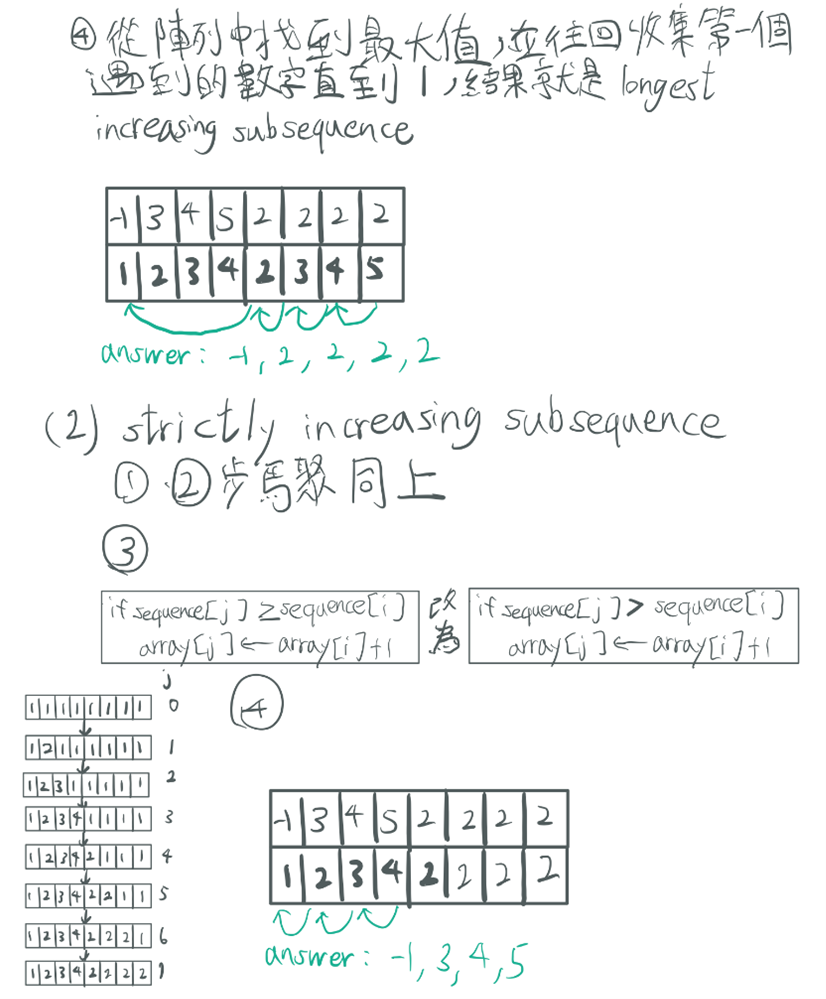 ④ 從陣列中找到最大值，並往回收集第一個
遇到的數字直到 1，結果就是 longest
increasing subsequence
-1 3 4 5 2 2 2 2
1 2 3 4 2 3 4 5
answer: -1, 2, 2, 2, 2
(2) strictly increasing subsequence
① ② 步驟同上
③
if sequence[j] ≥ sequence[i]
array[j] ← array[i]+1
改為
if sequence[j] > sequence[i]
array[j] ← array[i]+1
j
1 1 1 1 1 1 1 1 0
1 2 1 1 1 1 1 1 1
1 2 3 1 1 1 1 1 2
1 2 3 4 1 1 1 1 3
1 2 3 4 2 1 1 1 4
1 2 3 4 2 2 1 1 5
1 2 3 4 2 2 2 1 6
1 2 3 4 2 2 2 2 7
④
-1 3 4 5 2 2 2 2
1 2 3 4 2 2 2 2
answer: -1, 3, 4, 5